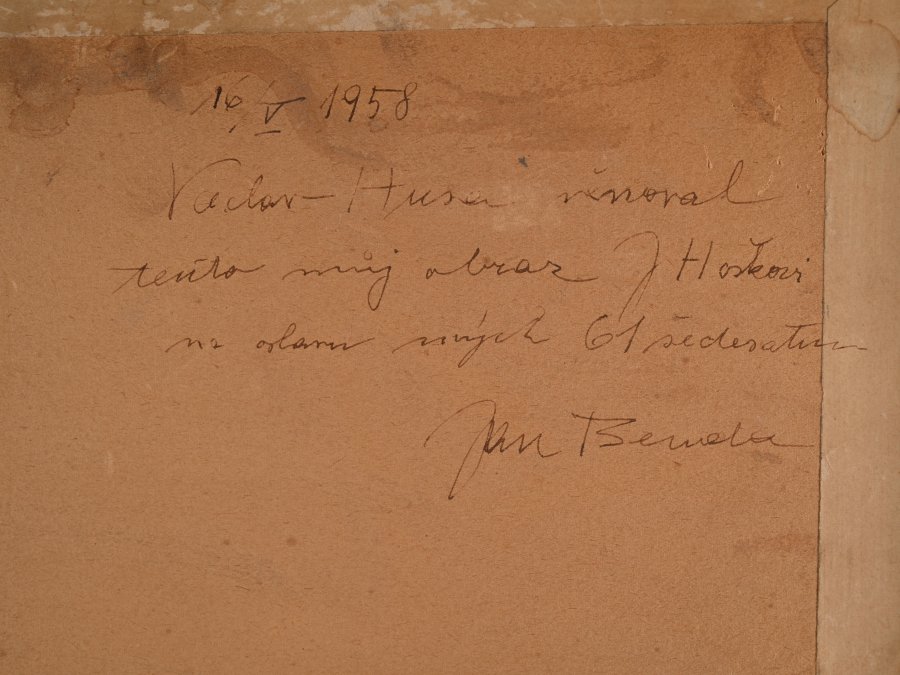 16, V 1958
Václav - Husa věnoval
tento můj obraz J Hoškovi
na oslavu mých 61 šedesatin
Jan Benda